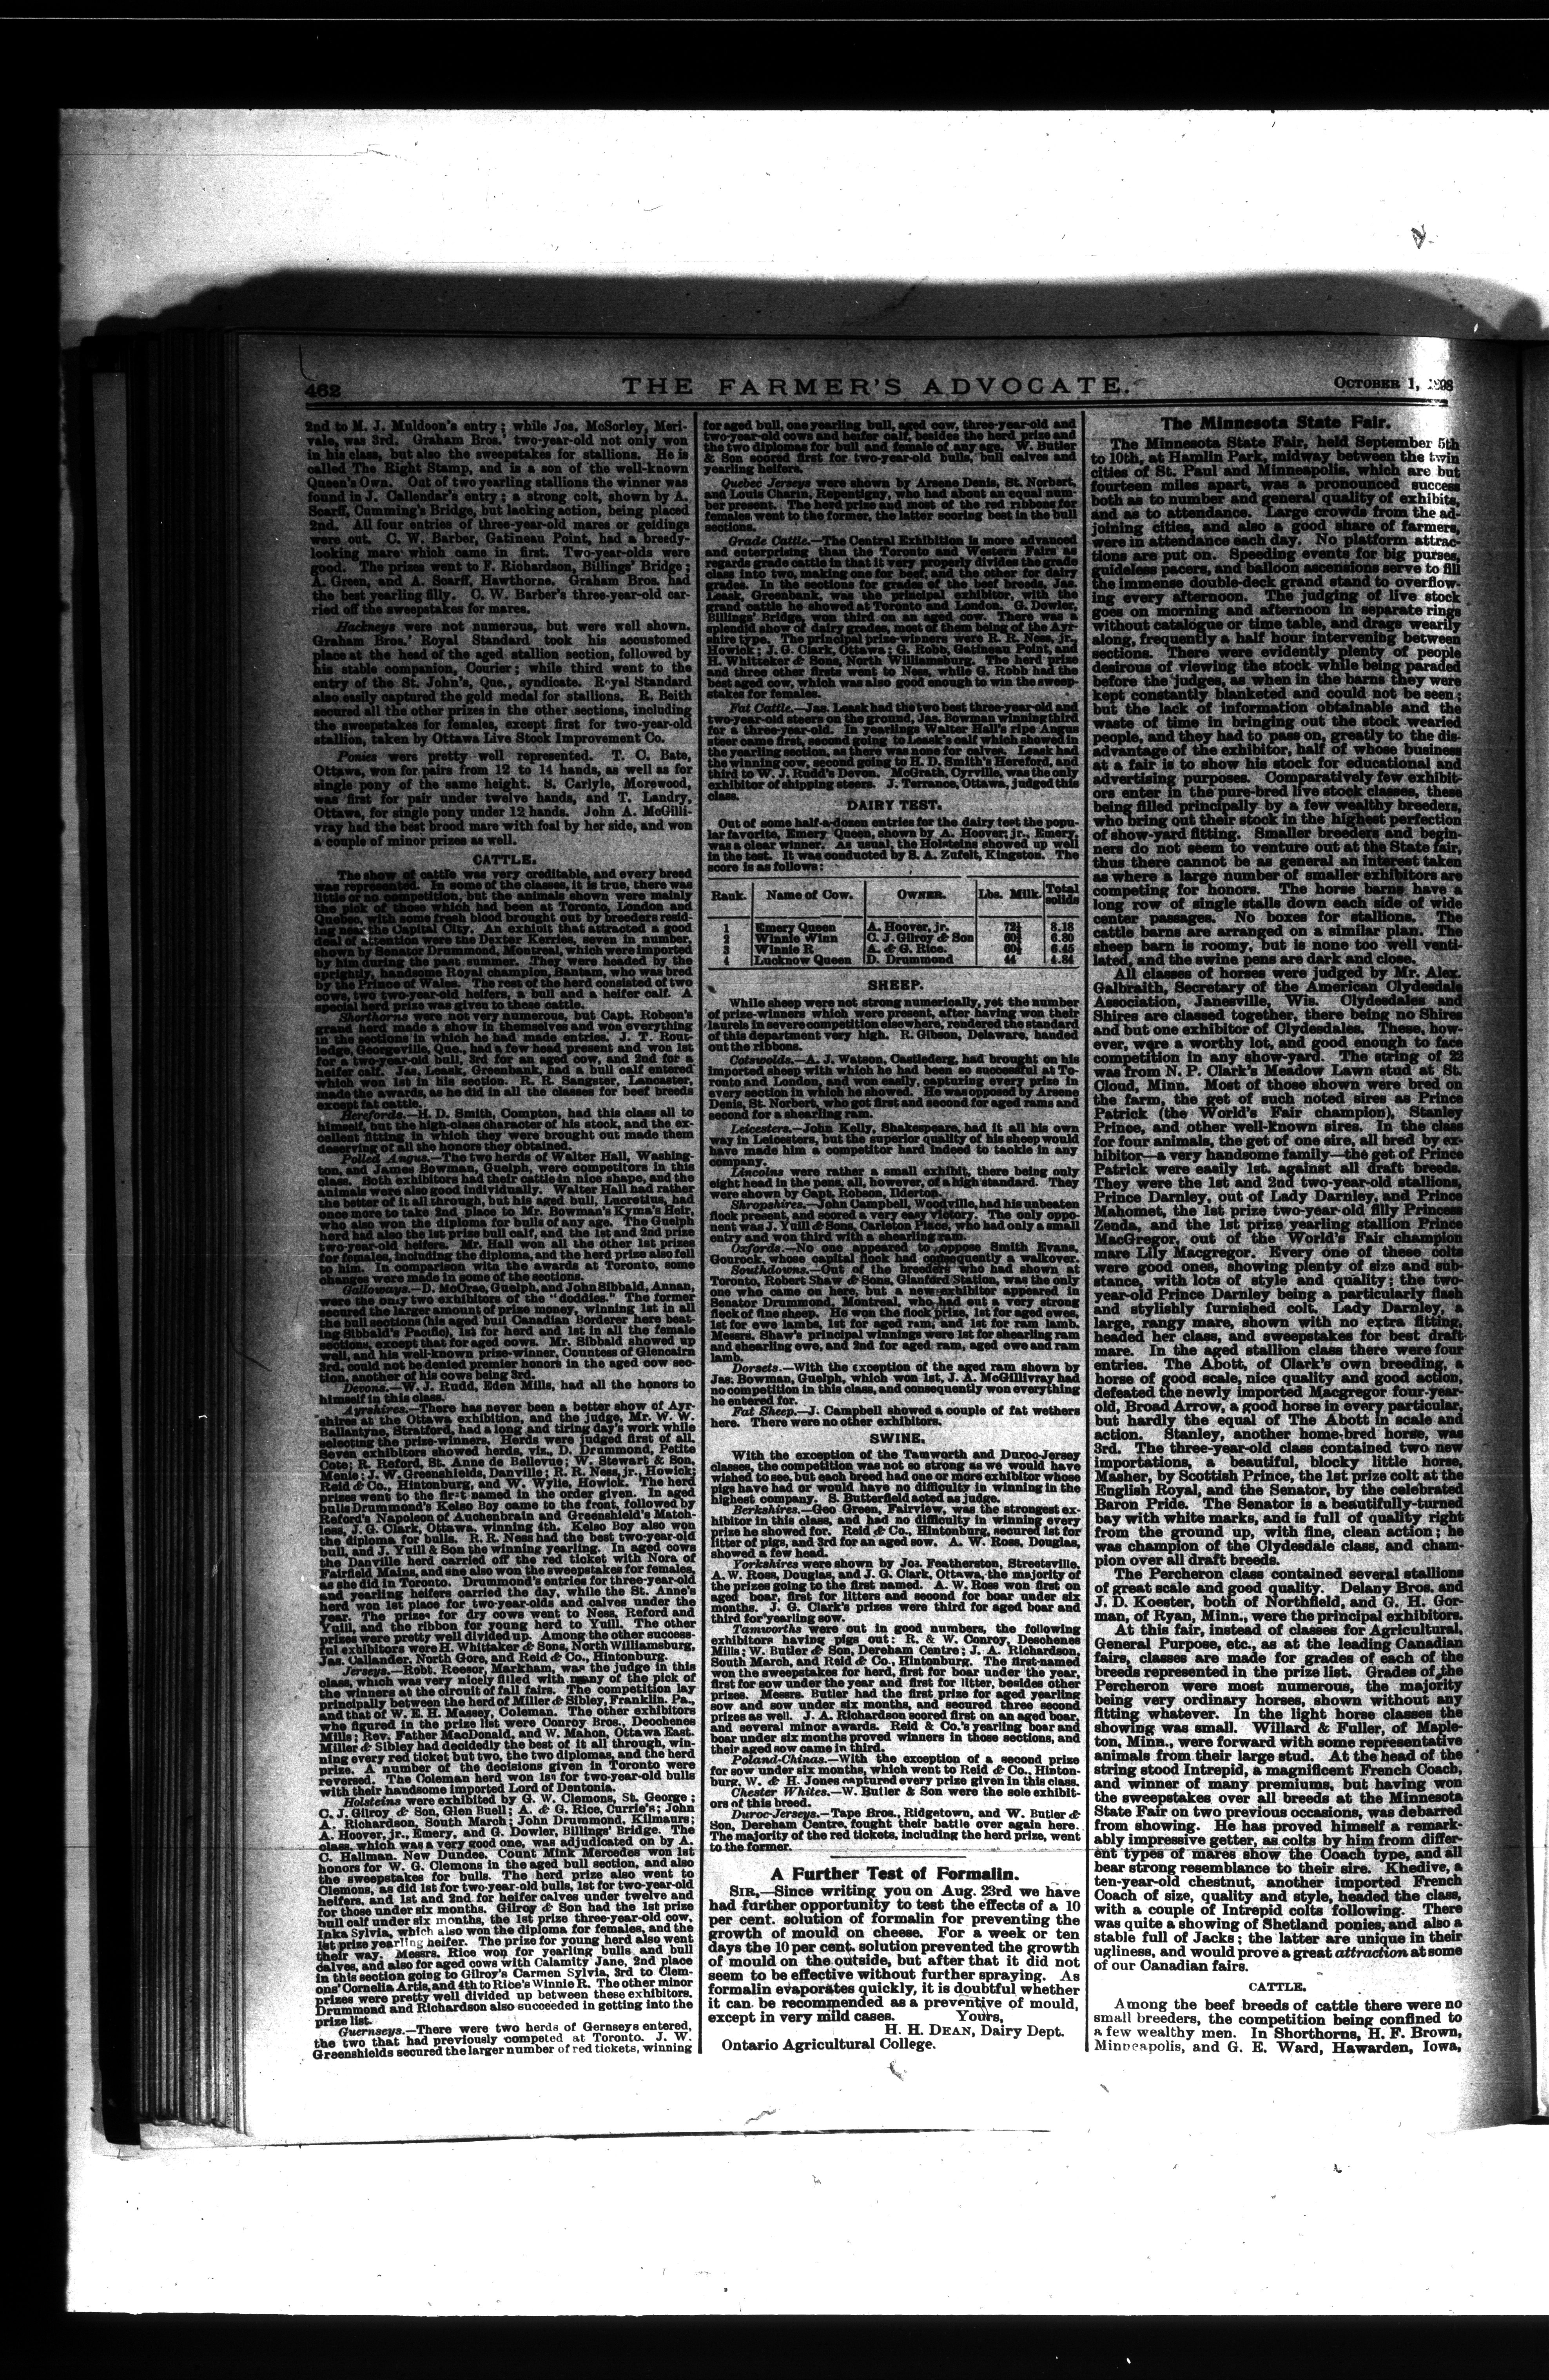 462 THE FARMER'S ADVOCATE. OCTOBER 1, 1898
2nd to M. J. Muldoon's entry; while Jos. McSorley, Meri-
vale, was 3rd. Graham Bros.' two-year-old not only won
in his class, but also the sweepstakes for stallions. He is
called The Right Stamp, and is a son of the well-known
Queen's Own. Out of two yearling stallions the winner was
found in J. Callendar's entry; a strong colt, shown by A.
Scarff, Cumming's Bridge, but lacking action, being placed
2nd. All four entries of three-year-old mares or geldings
were out. C. W. Barber, Gatineau Point, had a breedy-
looking mare which came in first. Two-year-olds were
good. The prizes went to F. Richardson, Billings' Bridge;
A. Green, and A. Scarff, Hawthorne. Graham Bros. had
the best yearling filly. C. W. Barber's three-year-old car-
ried off the sweepstakes for mares.
Hackneys were not numerous, but were well shown.
Graham Bros.' Royal Standard took his accustomed
place at the head of the aged stallion section, followed by
his stable companion, Courier; while third went to the
entry of the St. John's, Que., syndicate. Royal Standard
also easily captured the gold medal for stallions. R. Beith
secured all the other prizes in the other sections, including
the sweepstakes for females, except first for two-year-old
stallion, taken by Ottawa Live Stock Improvement Co.
Ponies were pretty well represented. T. C. Bate,
Ottawa, won for pairs from 12 to 14 hands, as well as for
single pony of the same height. S. Carlyle, Morewood,
was first for pair under twelve hands, and T. Landry,
Ottawa, for single pony under 12 hands. John A. McGilli-
vray had the best brood mare with foal by her side, and won
a couple of minor prizes as well.
CATTLE.
The show of cattle was very creditable, and every breed
was represented. In some of the classes, it is true, there was
little or no competition, but the animals shown were mainly
the pick of those which had been at Toronto, London and
Quebec, with some fresh blood brought out by breeders resid-
ing near the Capital City. An exhibit that attracted a good
deal of attention were the Dexter Kerries, seven in number,
shown by Senator Drummond, Montreal, which were imported
by him during the past summer. They were headed by the
sprightly, handsome Royal champion, Bantam, who was bred
by the Prince of Wales. The rest of the herd consisted of two
cows, two two-year-old heifers, a bull and a heifer calf. A
special herd prize was given to these cattle.
Shorthorns were not very numerous, but Capt. Robson's
grand herd made a show in themselves and won everything
in the sections in which he had made entries. J. T. Rout-
ledge, Georgeville, Que., had a few head present and won 1st
for a two-year-old bull, 3rd for an aged cow, and 2nd for a
heifer calf. Jas. Leask, Greenbank, had a bull calf entered
which won 1st in his section. R. R. Sangster, Lancaster,
made the awards, as he did in all the classes for beef breeds
except fat cattle.
Herefords.—H. D. Smith, Compton, had this class all to
himself, but the high-class character of his stock, and the ex-
cellent fitting in which they were brought out made them
deserving of all the honors they obtained.
Polled Angus.—The two herds of Walter Hall, Washing-
ton, and James Bowman, Guelph, were competitors in this
class. Both exhibitors had their cattle in nice shape, and the
animals were also good individually. Walter Hall had rather
the better of it all through, but his aged bull, Lucretius, had
once more to take 2nd place to Mr. Bowman's Kyma's Heir,
who also won the diploma for bulls of any age. The Guelph
herd had also the 1st prize bull calf, and the 1st and 2nd prize
two-year-old heifers. Mr. Hall won all the other 1st prizes
for females, including the diploma, and the herd prize also fell
to him. In comparison with the awards at Toronto, some
changes were made in some of the sections.
Galloways.—D. McCrae, Guelph, and John Sibbald, Annan,
were the only two exhibitors of the "doddies." The former
secured the larger amount of prize money, winning 1st in all
the bull sections (his aged bull Canadian Borderer here beat-
ing Sibbald's Pacific), 1st for herd and 1st in all the female
sections, except that for aged cows. Mr. Sibbald showed up
well, and his well-known prize-winner, Countess of Glencairn
3rd, could not be denied premier honors in the aged cow sec-
tion, another of his cows being 3rd.
Devons.—W. J. Rudd, Eden Mills, had all the honors to
himself in this class.
Ayrshires.—There has never been a better show of Ayr-
shires at the Ottawa exhibition, and the judge, Mr. W. W.
Ballantyne, Stratford, had a long and tiring day's work while
selecting the prize-winners. Herds were judged first of all.
Seven exhibitors showed herds, viz., D. Drummond, Petite
Cote; R. Reford, St. Anne de Bellevue; W. Stewart & Son,
Menie; J. W. Greenshields, Danville; R. R. Ness, jr., Howick;
Reid & Co., Hintonburg, and W. Wylie, Howick. The herd
prizes went to the first named in the order given. In aged
bulls Drummond's Kelso Boy came to the front, followed by
Reford's Napoleon of Auchenbrain and Greenshield's Match-
less, J. G. Clark, Ottawa, winning 4th. Kelso Boy also won
the diploma for bulls. R. R. Ness had the best two-year-old
bull, and J. Yuill & Son the winning yearling. In aged cows
the Danville herd carried off the red ticket with Nora of
Fairfield Mains, and she also won the sweepstakes for females,
as she did in Toronto. Drummond's entries for three-year-old
and yearling heifers carried the day, while the St. Anne's
herd won 1st place for two-year-olds and calves under the
year. The prizes for dry cows went to Ness, Reford and
Yuill, and the ribbon for young herd to Yuill. The other
prizes were pretty well divided up. Among the other success-
ful exhibitors were H. Whittaker & Sons, North Williamsburg,
Jas. Callander, North Gore, and Reid & Co., Hintonburg.
Jerseys.—Robt. Reesor, Markham, was the judge in this
class, which was very nicely filled with many of the pick of
the winners at the circuit of fall fairs. The competition lay
principally between the herd of Miller & Sibley, Franklin, Pa.,
and that of W. E. H. Massey, Coleman. The other exhibitors
who figured in the prize list were Conroy Bros., Deochenes
Mills; Rev. Father MacDonald, and W. Mahon, Ottawa East.
Miller & Sibley had decidedly the best of it all through, win-
ning every red ticket but two, the two diplomas, and the herd
prize. A number of the decisions given in Toronto were
reversed. The Coleman herd won 1st for two-year-old bulls
with their handsome imported Lord of Dentonia.
Holsteins were exhibited by G. W. Clemons, St. George;
C. J. Gilroy & Son, Glen Buell; A. & G. Rice, Currie's; John
A. Richardson, South March; John Drummond, Kilmaurs;
A. Hoover, jr., Emery, and G. Dowler, Billings' Bridge. The
class, which was a very good one, was adjudicated on by A.
C. Hallman, New Dundee. Count Mink Mercedes won 1st
honors for W. G. Clemons in the aged bull section, and also
the sweepstakes for bulls. The herd prize also went to
Clemons, as did 1st for two-year-old bulls, 1st for two-year-old
heifers, and 1st and 2nd for heifer calves under twelve and
for those under six months. Gilroy & Son had the 1st prize
bull calf under six months, the 1st prize three-year-old cow,
Inka Sylvia, which also won the diploma for females, and the
1st prize yearling heifer. The prize for young herd also went
their way. Messrs. Rice won for yearling bulls and bull
calves, and also for aged cows with Calamity Jane, 2nd place
in this section going to Gilroy's Carmen Sylvia, 3rd to Clem-
ons' Cornelia Artis, and 4th to Rice's Winnie R. The other minor
prizes were pretty well divided up between these exhibitors.
Drummond and Richardson also succeeded in getting into the
prize list.
Guernseys.—There were two herds of Gernseys entered,
the two that had previously competed at Toronto. J. W.
Greenshields secured the larger number of red tickets, winning
for aged bull, one yearling bull, aged cow, three-year-old and
two-year-old cows and heifer calf, besides the herd prize and
the two diplomas for bull and female of any age. W. Butler
& Son scored first for two-year-old bulls, bull calves and
yearling heifers.
Quebec Jerseys were shown by Arsene Denis, St. Norbert,
and Louis Charin, Repentigny, who had about an equal num-
ber present. The herd prize and most of the red ribbons for
females went to the former, the latter scoring best in the bull
sections.
Grade Cattle.—The Central Exhibition is more advanced
and enterprising than the Toronto and Western Fairs as
regards grade cattle in that it very properly divides the grade
class into two, making one for beef, and the other for dairy
grades. In the sections for grades of the beef breeds, Jas.
Leask, Greenbank, was the principal exhibitor, with the
grand cattle he showed at Toronto and London. G. Dowler,
Billings' Bridge, won third on an aged cow. There was a
splendid show of dairy grades, most of them being of the Ayr-
shire type. The principal prize-winners were R. R. Ness, jr.,
Howick; J. G. Clark, Ottawa; G. Robb, Gatineau Point, and
H. Whitteker & Sons, North Williamsburg. The herd prize
and three other firsts went to Ness, while G. Robb had the
best aged cow, which was also good enough to win the sweep-
stakes for females.
Fat Cattle.—Jas. Leask had the two best three-year-old and
two-year-old steers on the ground, Jas. Bowman winning third
for a three-year-old. In yearlings Walter Hall's ripe Angus
steer came first, second going to Leask's calf which showed in
the yearling section, as there was none for calves. Leask had
the winning cow, second going to H. D. Smith's Hereford, and
third to W. J. Rudd's Devon. McGrath, Cyrville, was the only
exhibitor of shipping steers. J. Terrance, Ottawa, judged this
class.
DAIRY TEST.
Out of some half-a-dozen entries for the dairy test the popu-
lar favorite, Emery Queen, shown by A. Hoover, jr., Emery,
was a clear winner. As usual, the Holsteins showed up well
in the test. It was conducted by S. A. Zufelt, Kingston. The
score is as follows:
Rank. Name of Cow. OWNER. Lbs. Milk. Total solids
1 Emery Queen A. Hoover, jr. 72½ 8.18
2 Winnie Winn C. J. Gilroy & Son 60½ 6.80
3 Winnie R A. & G. Rice. 60½ 6.45
4 Lucknow Queen D. Drummond 44 4.84
SHEEP.
While sheep were not strong numerically, yet the number
of prize-winners which were present, after having won their
laurels in severe competition elsewhere, rendered the standard
of this department very high. R. Gibson, Delaware, handed
out the ribbons.
Cotswolds.—A. J. Watson, Castlederg, had brought on his
imported sheep with which he had been so successful at To-
ronto and London, and won easily, capturing every prize in
every section in which he showed. He was opposed by Arsene
Denis, St. Norbert, who got first and second for aged rams and
second for a shearling ram.
Leicesters.—John Kelly, Shakespeare, had it all his own
way in Leicesters, but the superior quality of his sheep would
have made him a competitor hard indeed to tackle in any
company.
Lincolns were rather a small exhibit, there being only
eight head in the pens, all, however, of a high standard. They
were shown by Capt. Robson, Ilderton.
Shropshires.—John Campbell, Woodville, had his unbeaten
flock present, and scored a very easy victory. The only oppo-
nent was J. Yuill & Sons, Carleton Place, who had only a small
entry and won third with a shearling ram.
Oxfords.—No one appeared to oppose Smith Evans,
Gourock, whose capital flock had consequently a walkover.
Southdowns.—Out of the breeders who had shown at
Toronto, Robert Shaw & Sons, Glanford Station, was the only
one who came on here, but a new exhibitor appeared in
Senator Drummond, Montreal, who had out a very strong
fleck of fine sheep. He won the flock prize, 1st for aged ewes,
1st for ewe lambs, 1st for aged ram, and 1st for ram lamb.
Messrs. Shaw's principal winnings were 1st for shearling ram
and shearling ewe, and 2nd for aged ram, aged ewe and ram
lamb.
Dorsets.—With the exception of the aged ram shown by
Jas. Bowman, Guelph, which won 1st, J. A. McGillivray had
no competition in this class, and consequently won everything
he entered for.
Fat Sheep.—J. Campbell showed a couple of fat wethers
here. There were no other exhibitors.
SWINE.
With the exception of the Tamworth and Duroc-Jersey
classes, the competition was not so strong as we would have
wished to see, but each breed had one or more exhibitor whose
pigs have had or would have no difficulty in winning in the
highest company. S. Butterfield acted as judge.
Berkshires.—Geo Green, Fairview, was the strongest ex-
hibitor in this class, and had no difficulty in winning every
prize he showed for. Reid & Co., Hintonburg, secured 1st for
litter of pigs, and 3rd for an aged sow. A. W. Ross, Douglas,
showed a few head.
Yorkshires were shown by Jos. Featherston, Streetsville,
A. W. Ross, Douglas, and J. G. Clark, Ottawa, the majority of
the prizes going to the first named. A. W. Ross won first on
aged boar, first for litters and second for boar under six
months. J. G. Clark's prizes were third for aged boar and
third for yearling sow.
Tamworths were out in good numbers, the following
exhibitors having pigs out: R. & W. Conroy, Deschenes
Mills; W. Butler & Son, Dereham Centre; J. A. Richardson,
South March, and Reid & Co., Hintonburg. The first-named
won the sweepstakes for herd, first for boar under the year,
first for sow under the year and first for litter, besides other
prizes. Messrs. Butler had the first prize for aged yearling
sow and sow under six months, and secured three second
prizes as well. J. A. Richardson scored first on an aged boar,
and several minor awards. Reid & Co.'s yearling boar and
boar under six months proved winners in those sections, and
their aged sow came in third.
Poland-Chinas.—With the exception of a second prize
for sow under six months, which went to Reid & Co., Hinton-
burg, W. & H. Jones captured every prize given in this class.
Chester Whites.—W. Butler & Son were the sole exhibit-
ors of this breed.
Duroc-Jerseys.—Tape Bros., Ridgetown, and W. Butler &
Son, Dereham Centre, fought their battle over again here.
The majority of the red tickets, including the herd prize, went
to the former.
A Further Test of Formalin.
SIR,—Since writing you on Aug. 23rd we have
had further opportunity to test the effects of a 10
per cent. solution of formalin for preventing the
growth of mould on cheese. For a week or ten
days the 10 per cent. solution prevented the growth
of mould on the outside, but after that it did not
seem to be effective without further spraying. As
formalin evaporates quickly, it is doubtful whether
it can be recommended as a preventive of mould,
except in very mild cases. Yours,
H. H. DEAN, Dairy Dept.
Ontario Agricultural College.
The Minnesota State Fair.
The Minnesota State Fair, held September 5th
to 10th, at Hamlin Park, midway between the twin
cities of St. Paul and Minneapolis, which are but
fourteen miles apart, was a pronounced success
both as to number and general quality of exhibits,
and as to attendance. Large crowds from the ad-
joining cities, and also a good share of farmers,
were in attendance each day. No platform attrac-
tions are put on. Speeding events for big purses,
guideless pacers, and balloon ascensions serve to fill
the immense double-deck grand stand to overflow-
ing every afternoon. The judging of live stock
goes on morning and afternoon in separate rings
without catalogue or time table, and drags wearily
along, frequently a half hour intervening between
sections. There were evidently plenty of people
desirous of viewing the stock while being paraded
before the judges, as when in the barns they were
kept constantly blanketed and could not be seen;
but the lack of information obtainable and the
waste of time in bringing out the stock wearied
people, and they had to pass on, greatly to the dis-
advantage of the exhibitor, half of whose business
at a fair is to show his stock for educational and
advertising purposes. Comparatively few exhibit-
ors enter in the pure-bred live stock classes, these
being filled principally by a few wealthy breeders,
who bring out their stock in the highest perfection
of show-yard fitting. Smaller breeders and begin-
ners do not seem to venture out at the State fair,
thus there cannot be as general an interest taken
as where a large number of smaller exhibitors are
competing for honors. The horse barns have a
long row of single stalls down each side of wide
center passages. No boxes for stallions. The
cattle barns are arranged on a similar plan. The
sheep barn is roomy, but is none too well venti-
lated, and the swine pens are dark and close.
All classes of horses were judged by Mr. Alex.
Galbraith, Secretary of the American Clydesdale
Association, Janesville, Wis. Clydesdales and
Shires are classed together, there being no Shires
and but one exhibitor of Clydesdales. These, how-
ever, were a worthy lot, and good enough to face
competition in any show-yard. The string of 22
was from N. P. Clark's Meadow Lawn stud at St.
Cloud, Minn. Most of those shown were bred on
the farm, the get of such noted sires as Prince
Patrick (the World's Fair champion), Stanley
Prince, and other well-known sires. In the class
for four animals, the get of one sire, all bred by ex-
hibitor—a very handsome family—the get of Prince
Patrick were easily 1st. against all draft breeds.
They were the 1st and 2nd two-year-old stallions,
Prince Darnley, out of Lady Darnley, and Prince
Mahomet, the 1st prize two-year-old filly Princess
Zenda, and the 1st prize yearling stallion Prince
MacGregor, out of the World's Fair champion
mare Lily Macgregor. Every one of these colts
were good ones, showing plenty of size and sub-
stance, with lots of style and quality; the two-
year-old Prince Darnley being a particularly flash
and stylishly furnished colt. Lady Darnley, a
large, rangy mare, shown with no extra fitting,
headed her class, and sweepstakes for best draft
mare. In the aged stallion class there were four
entries. The Abott, of Clark's own breeding, a
horse of good scale, nice quality and good action,
defeated the newly imported Macgregor four-year-
old, Broad Arrow, a good horse in every particular,
but hardly the equal of The Abott in scale and
action. Stanley, another home-bred horse, was
3rd. The three-year-old class contained two new
importations, a beautiful, blocky little horse,
Masher, by Scottish Prince, the 1st prize colt at the
English Royal, and the Senator, by the celebrated
Baron Pride. The Senator is a beautifully-turned
bay with white marks, and is full of quality right
from the ground up, with fine, clean action; he
was champion of the Clydesdale class, and cham-
pion over all draft breeds.
The Percheron class contained several stallions
of great scale and good quality. Delany Bros. and
J. D. Koester, both of Northfield, and G. H. Gor-
man, of Ryan, Minn., were the principal exhibitors.
At this fair, instead of classes for Agricultural,
General Purpose, etc., as at the leading Canadian
fairs, classes are made for grades of each of the
breeds represented in the prize list. Grades of the
Percheron were most numerous, the majority
being very ordinary horses, shown without any
fitting whatever. In the light horse classes the
showing was small. Willard & Fuller, of Maple-
ton, Minn., were forward with some representative
animals from their large stud. At the head of the
string stood Intrepid, a magnificent French Coach,
and winner of many premiums, but having won
the sweepstakes over all breeds at the Minnesota
State Fair on two previous occasions, was debarred
from showing. He has proved himself a remark-
ably impressive getter, as colts by him from differ-
ent types of mares show the Coach type, and all
bear strong resemblance to their sire. Khedive, a
ten-year-old chestnut, another imported French
Coach of size, quality and style, headed the class,
with a couple of Intrepid colts following. There
was quite a showing of Shetland ponies, and also a
stable full of Jacks; the latter are unique in their
ugliness, and would prove a great attraction at some
of our Canadian fairs.
CATTLE.
Among the beef breeds of cattle there were no
small breeders, the competition being confined to
a few wealthy men. In Shorthorns, H. F. Brown,
Minneapolis, and G. E. Ward, Hawarden, Iowa,